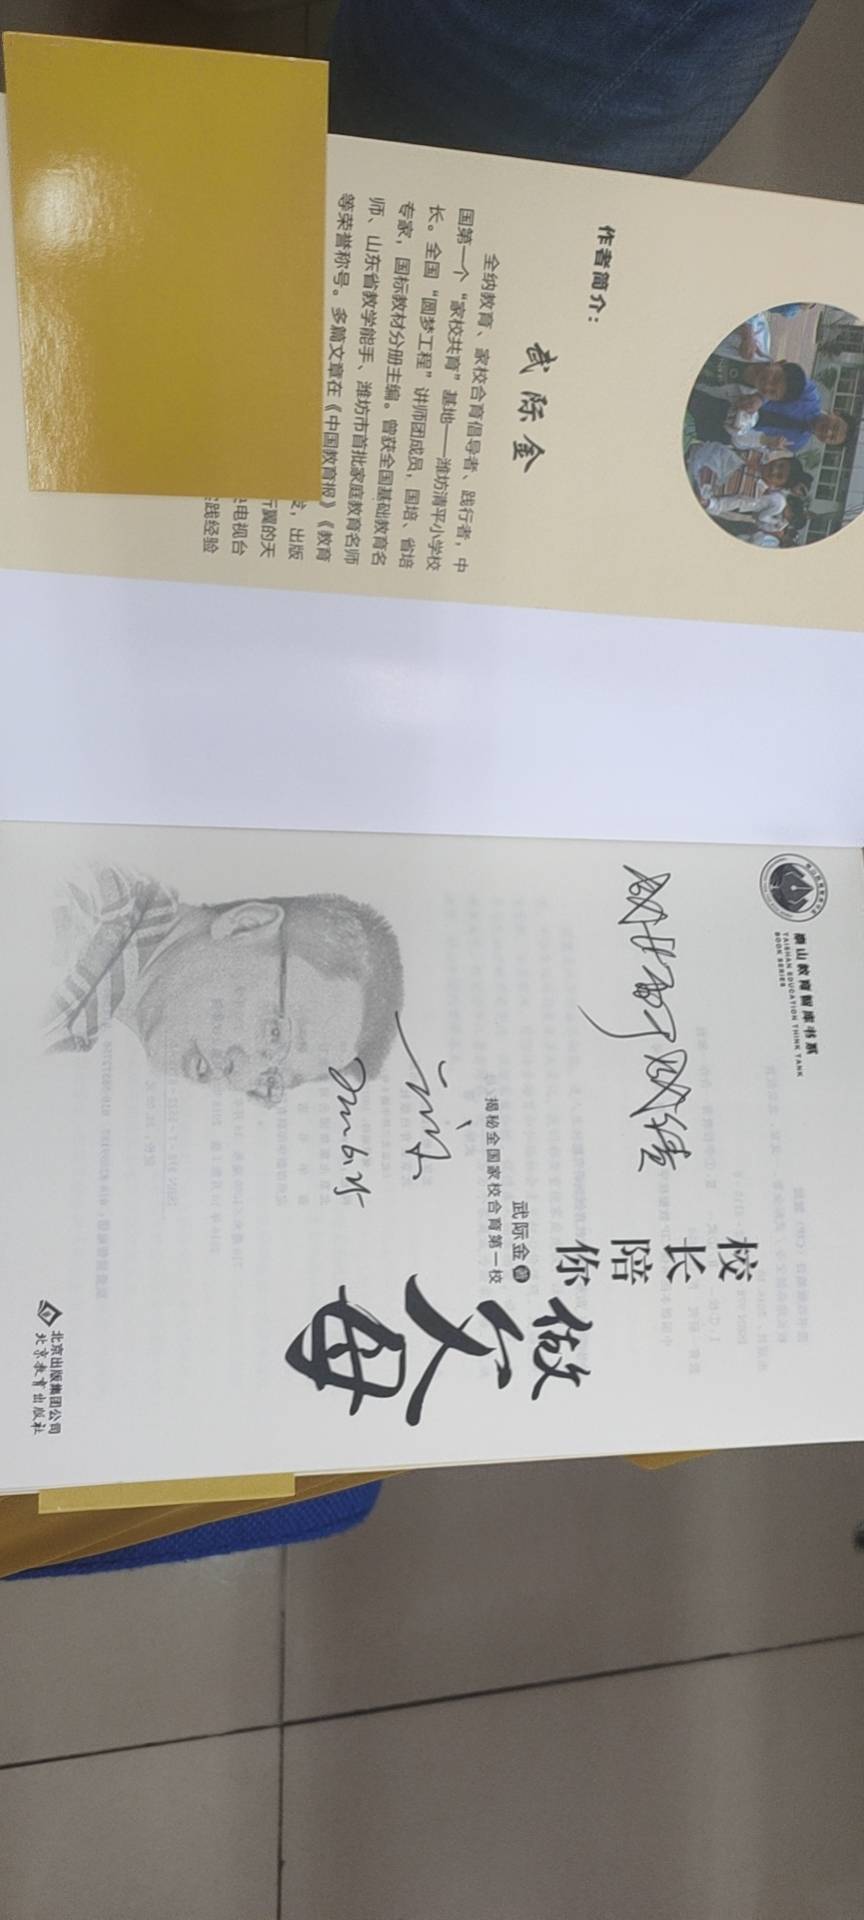 作者简介：
武际金
全纳教育、家校合育倡导者、践行者，中
国第一个“家校共育”基地——潍坊清平小学校
长。全国“圆梦工程”讲师团成员，国培、省培
专家，国标教材分册主编。曾获全国基础教育名
师、山东省教学能手、潍坊市首批家庭教育名师
等荣誉称号。多篇文章在《中国教育报》《教育
，出版
翼的天
电视台
践经验
泰山教育智库书系
TAISHAN EDUCATION THINK TANK
BOOK SERIES
校长
陪你
做父母
武际金 著
揭秘全国家校合育第一校
北京出版集团公司
北京教育出版社